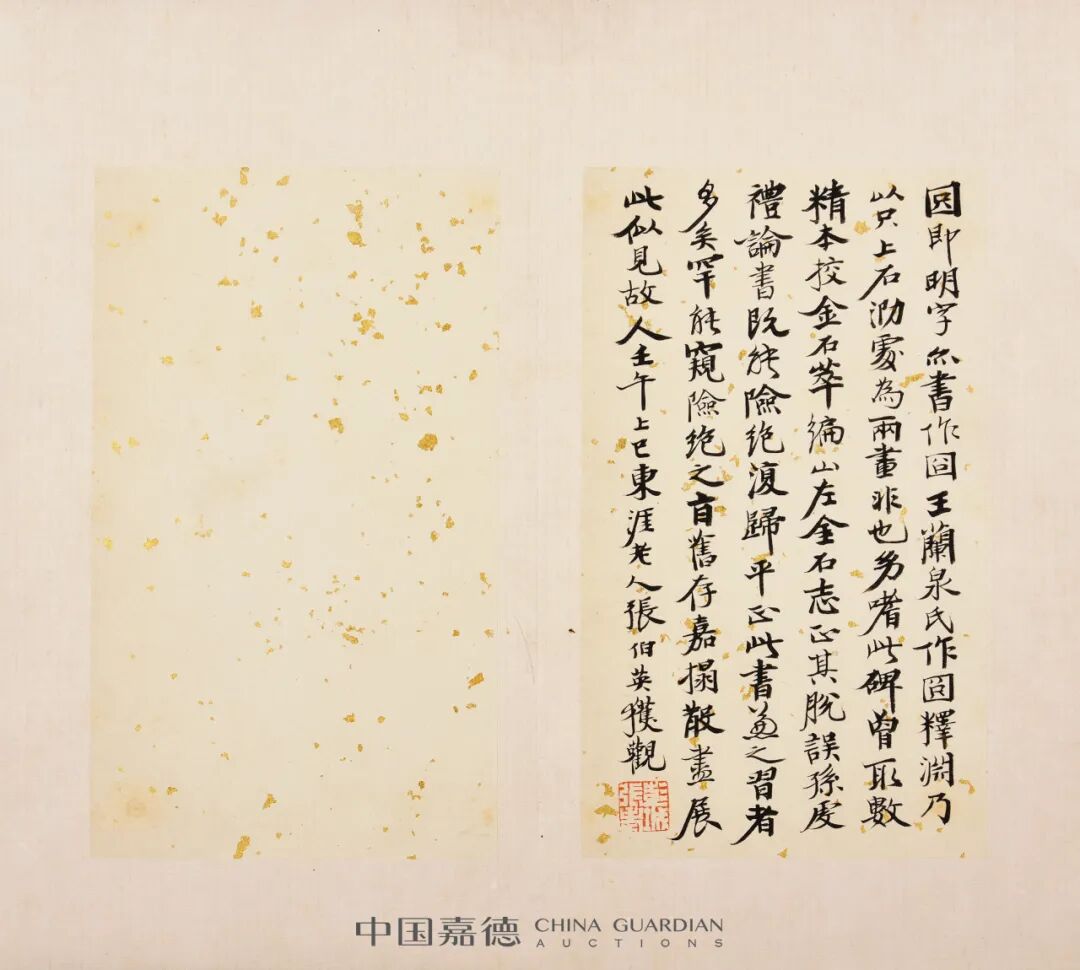 囧即明字亦書作囧王蘭泉氏作囧釋淵乃
以只上石泐處為兩畫非也勇嗜此碑曾取數
精本挍金石萃編山左金石志正其脫誤孫虔
禮論書既能險絕復歸平正此書兼之習者
多矣罕能窺險絕之旨舊存嘉搨散盡展
此似見故人壬午上巳東涯老人張伯英獲觀
中国嘉德 CHINA GUARDIAN
AUCTIONS